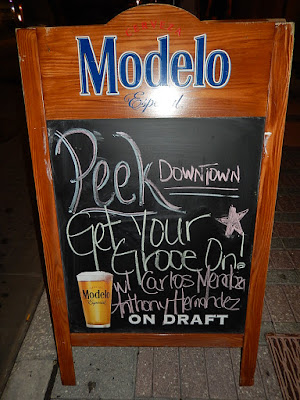 CERVEZA
Modelo
Especial
Peek DOWNTOWN
Get Your
Grooe On!
w/ Carlos Mendoza
Anthony Hernandez
Modelo
Especial
ON DRAFT